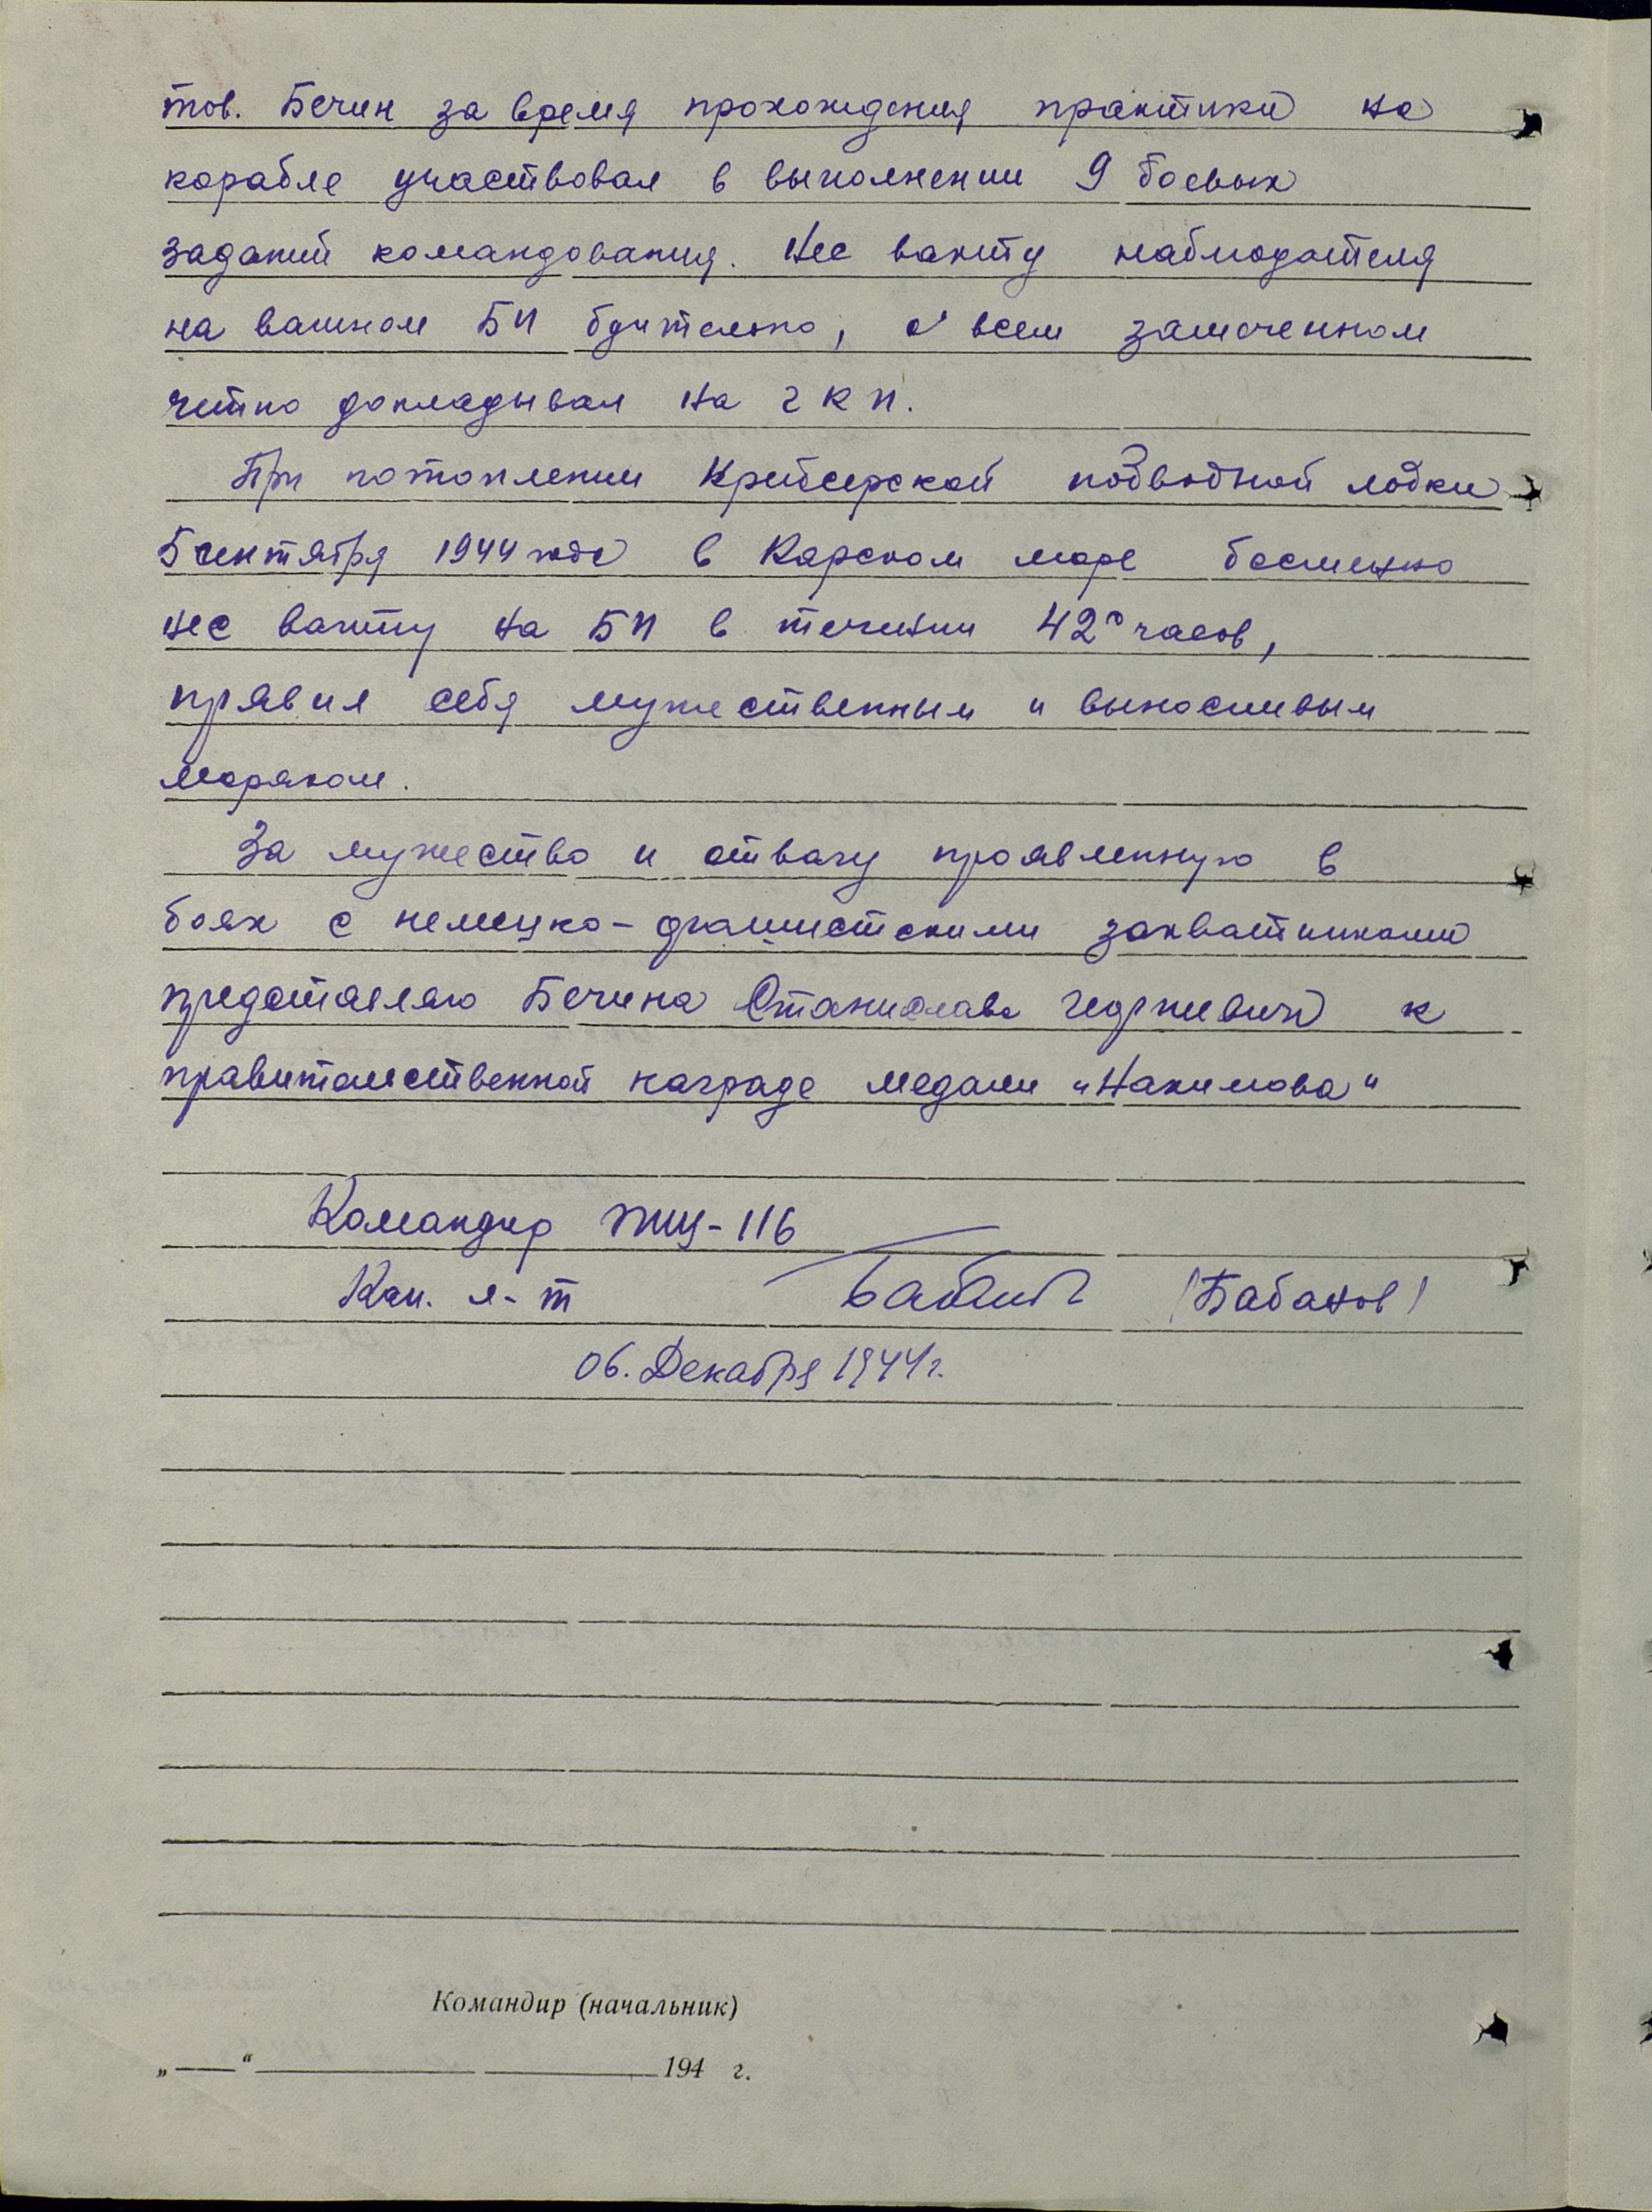 тов. Бечин за время прохождения практики на
корабле участвовал в выполнении 9 боевых
заданий командования. Нес вахту наблюдателя
на важном БП бдительно, о всем замеченном
четко докладывал на ГКП.
При потоплении крейсерской подводной лодки
5 сентября 1944 года в Карском море бессменно
нес вахту на БП в течении 42 часов,
прявил себя мужественным и выносливым
моряком.
За мужество и отвагу проявленную в
боях с немецко-фашистскими захватчиками
предстаяляю Бечина Станислава Георгиевича к
правительственной награде медали „Нахимова“
Командир ТЩ-116
Кап. л-т Бабанов (Бабанов)
06. Декабря 1944 г.
Командир (начальник)
„ “ 194 г.